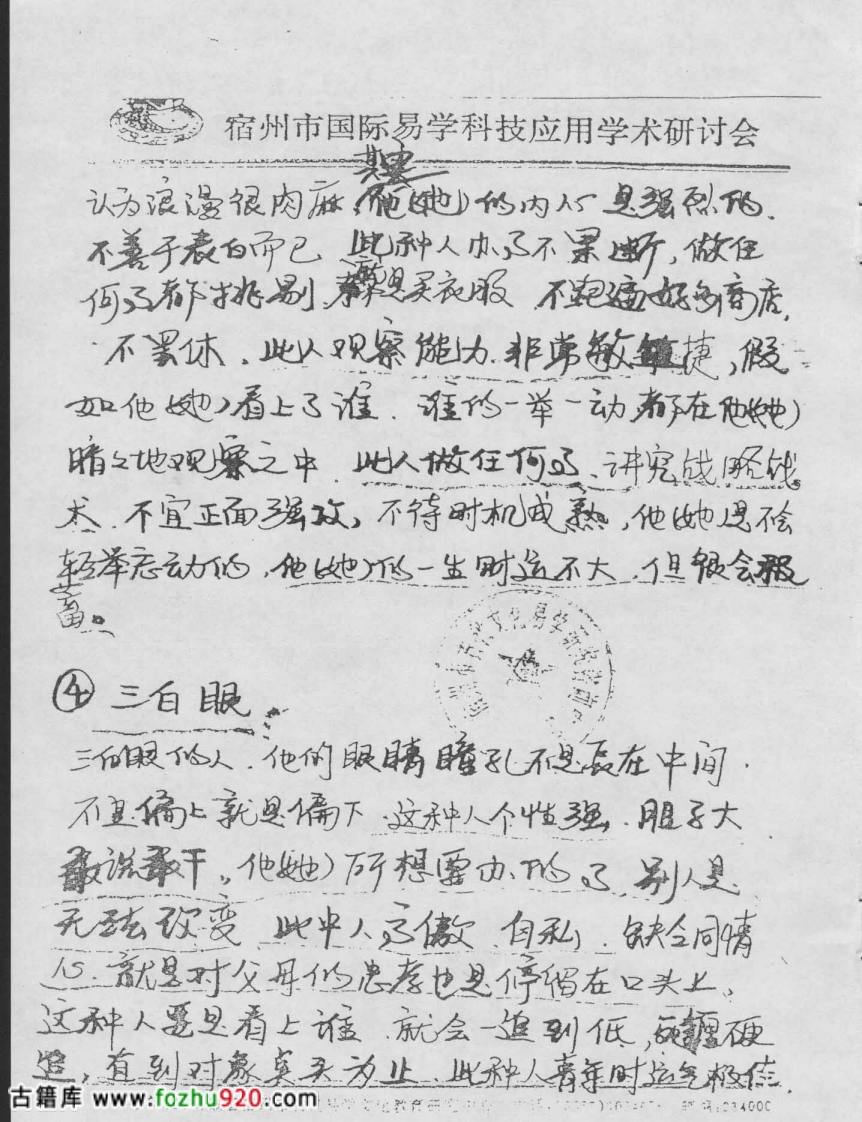 宿州市国际易学科技应用学术研讨会
其实
认为浪漫很肉麻,他(她)的内心是强烈的.
不善于表白而已 此种人办了不果断,做任
何了都挑剔.就是买衣服 不跑遍好多商店,
不罢休.此人观察能力.非常敏捷,假
如他(她)看上了谁.谁的一举一动,都在他(她)
暗々地观察之中.此人做任何了、讲究战略战
术.不宜正面强攻,不待时机成熟,他(她)是不会
轻举忘动的,他(她)的一生时运不大,但很会积
蓄。
④ 三白眼
三白眼的人.他的眼睛瞳孔不是长在中间.
不是偏上就是偏下.这种人个性强.胆子大
敢说敢干。他(她)所想要办的了.别人是
无法改变.此中人高傲.自私.缺乏同情
心.就是对父母的忠孝也是停留在口头上.
这种人要是看上谁.就会一追到低,死缠硬
追,有到对象实 为止.此种人青年时运气极佳.
古籍库 www.fozhu920.com